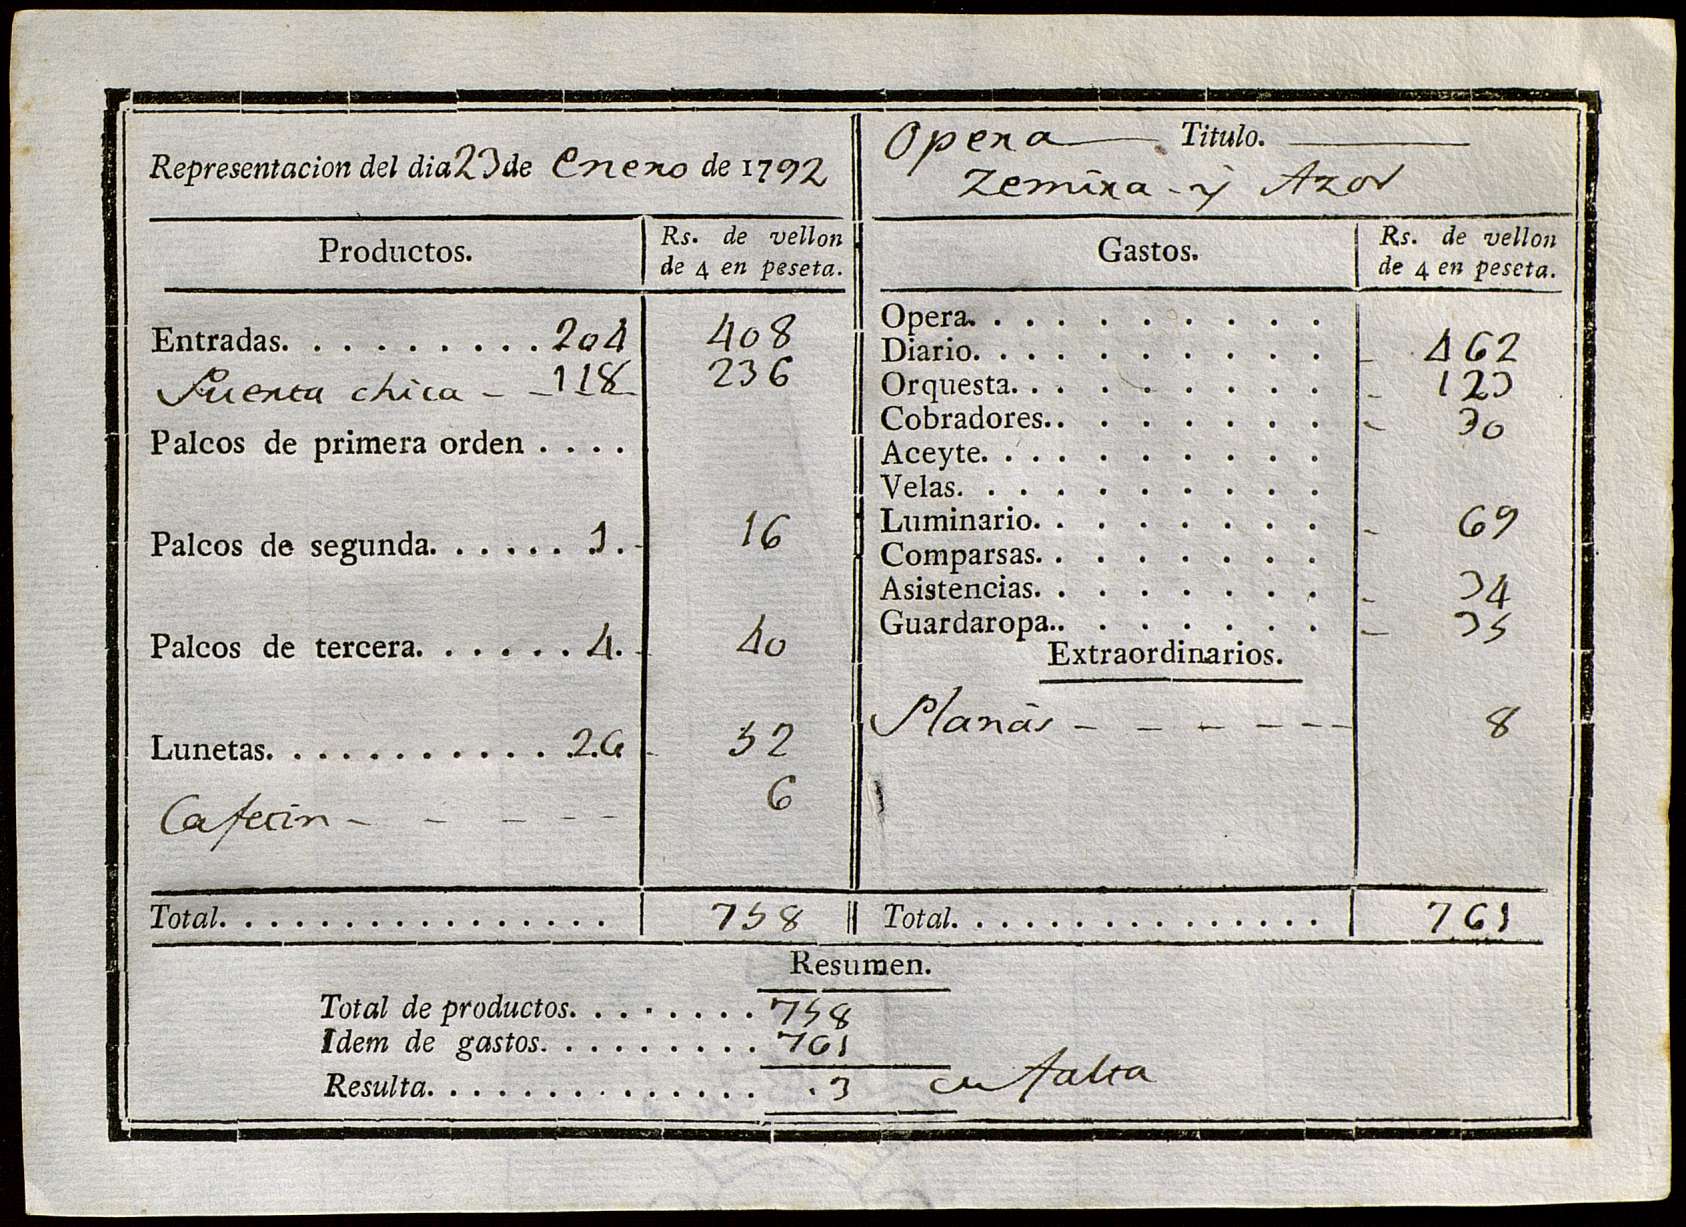 Representacion del dia 23 de Enero de 1792
Productos.
Rs. de vellon
de 4 en peseta.
Entradas. . . . . . . . . 204 408
Puerta chica - - 118 236
Palcos de primera orden . . . .
Palcos de segunda. . . . . . 1. - 16
Palcos de tercera. . . . . . 4. - 40
Lunetas. . . . . . . . . . . 26 - 52
Cafecin - - - - - 6
Total. . . . . . . . . . . . . . . . 758
Opera Titulo.
Zemira y Azor
Gastos.
Rs. de vellon
de 4 en peseta.
Opera. . . . . . . . . .
Diario. . . . . . . . . . - 462
Orquesta. . . . . . . . . - 123
Cobradores. . . . . . . . - 30
Aceyte. . . . . . . . . .
Velas. . . . . . . . . .
Luminario. . . . . . . . - 69
Comparsas. . . . . . . .
Asistencias. . . . . . . . - 34
Guardaropa. . . . . . . . - 35
Extraordinarios.
Planas - - - - - - - 8
Total. . . . . . . . . . . . . . . 761
Resumen.
Total de productos. . . . . . . . 758
Idem de gastos. . . . . . . . . 761
Resulta. . . . . . . . . . . . . . 3 en falta